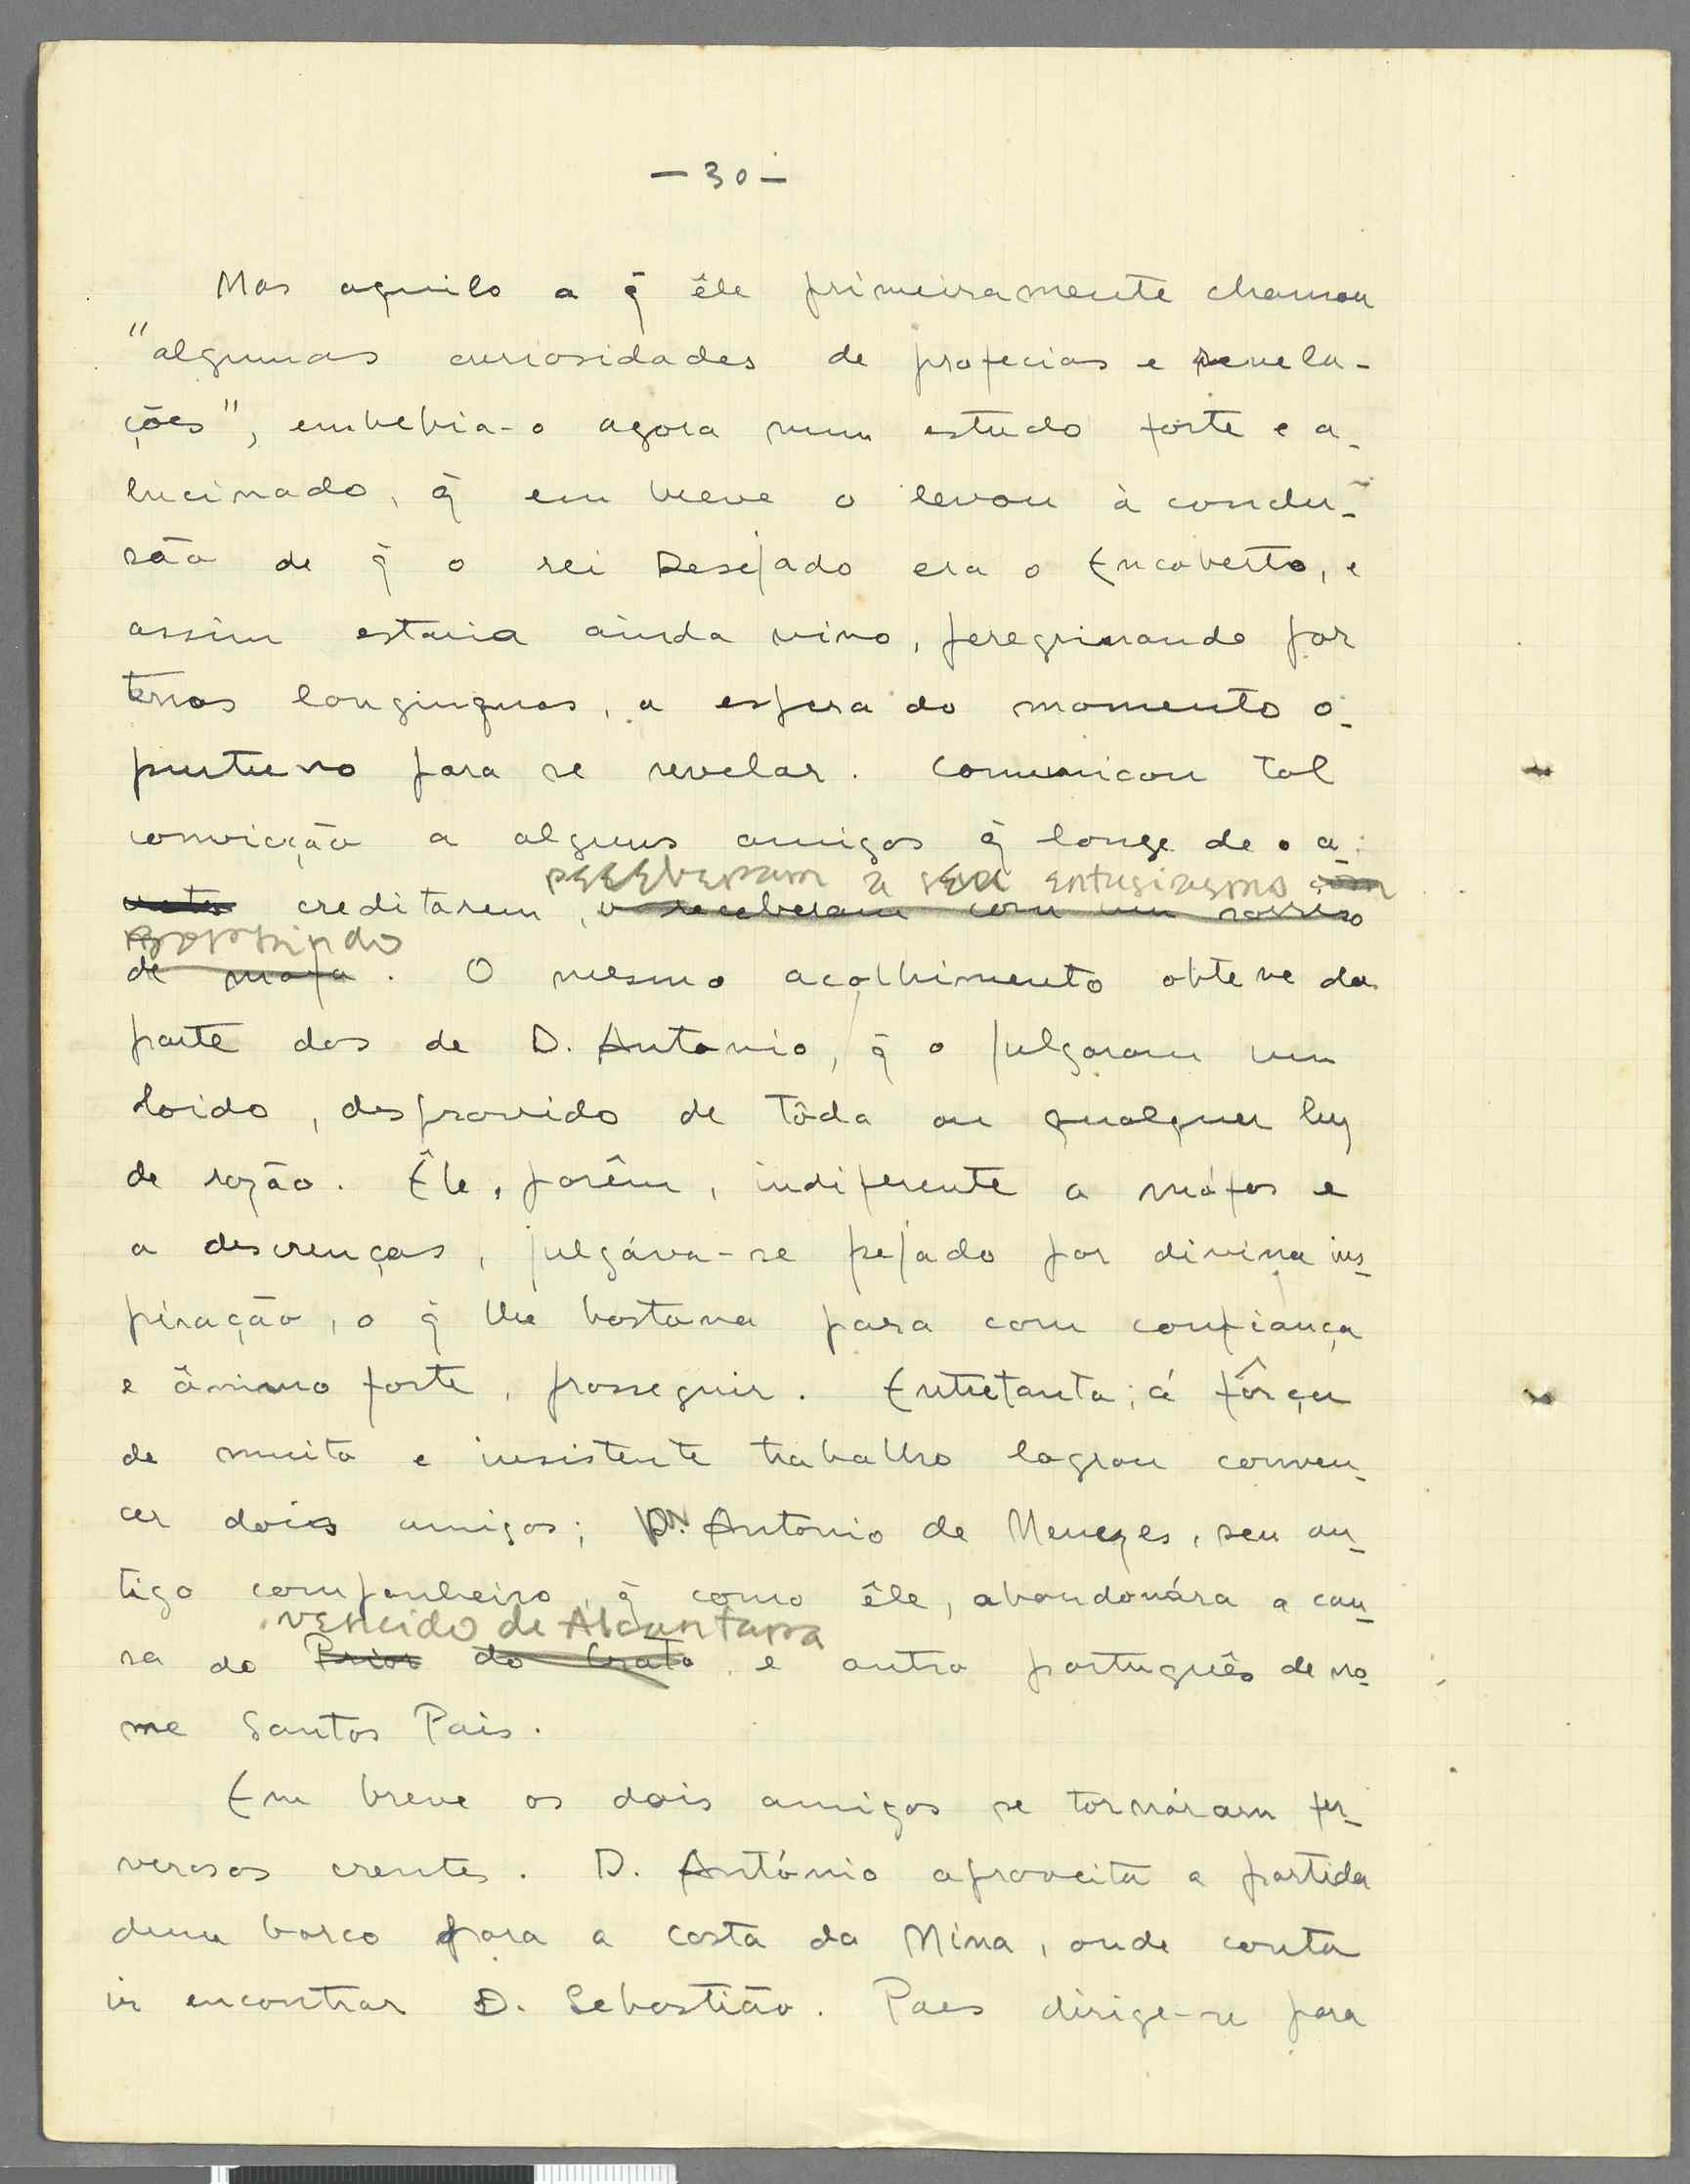 — 30 —
Mas aquilo a q̃ êle primeiramente chamou
"algumas curiosidades de profecias e revela-
ções", embebia-o agora num estudo forte e a-
lucinado, q̃ em breve o levou à conclu-
são de q̃ o rei Desejado era o Encoberto, e
assim estaria ainda vivo, peregrinando por
terras longinquas, a espera do momento o-
purtuno para se revelar. Comunicou tal
convicção a alguns amigos q̃ longe de o a-
receberam o seu entusiasmo com
creditarem, o receberam com um sorriso
sorrindo
de mofa. O mesmo acolhimento obteve da
parte dos de D. Antonio, q̃ o julgaram um
doido, desprovido de tôda ou qualquer luz
de razão. Êle, porêm, indiferente a mófas e
a descrenças, julgáva-se pejado por divina ins-
piração, o q̃ lhe bastava para com confiança
e ânimo forte, prosseguir. Entretanto, á fôrça
de muito e insistente trabalho logrou conven-
cer dois amigos; D. Antonio de Menezes, seu an-
tigo companheiro q̃ como êle, abandonára a cau-
vencido de Alcantara
sa do Prior do Crato, e outro português de no-
me Santos Pais.
Em breve os dois amigos se tornáram fer-
verosos crentes. D. António aproveita a partida
dum barco para a costa da Mina, onde conta
ir encontrar D. Sebastião. Paes dirige-se para